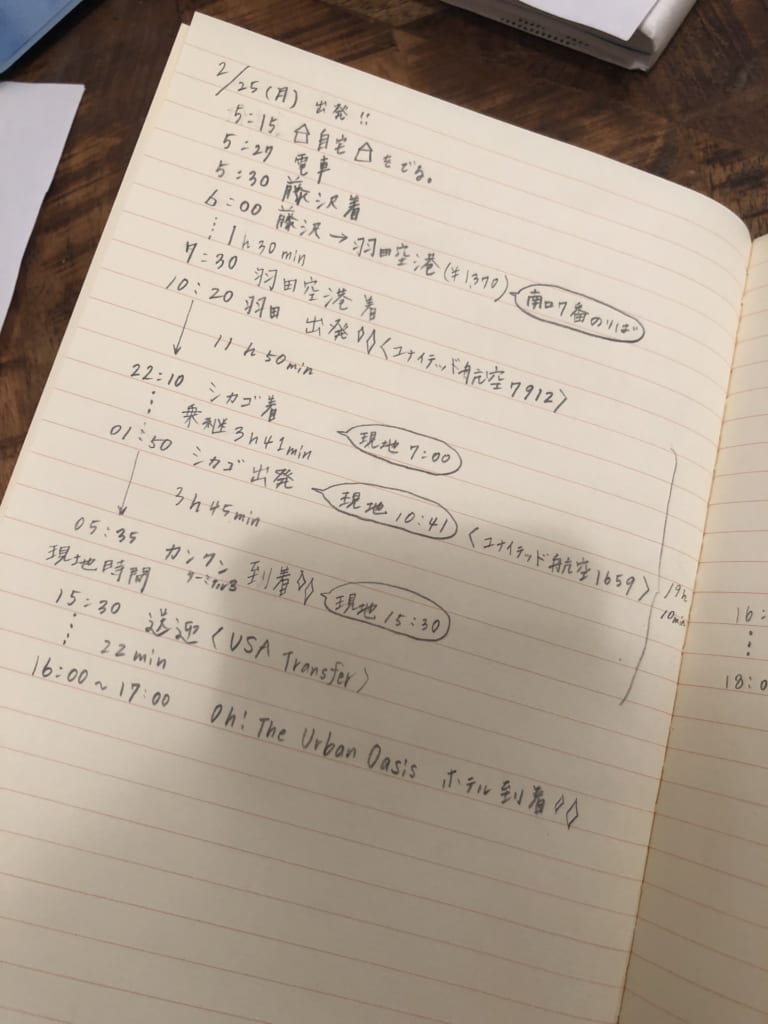 2/25(月) 出発!!
5:15 自宅 をでる。
5:27 電車
5:30 藤沢着
6:00 藤沢→羽田空港(¥1,370) 南口7番のりば
1h30min
7:30 羽田空港着
10:20 羽田 出発 〈ユナイテッド航空7912〉
11h50min
22:10 シカゴ着 現地 7:00
乗継3h41min
01:50 シカゴ出発 現地 10:41 〈ユナイテッド航空1659〉
3h45min
05:35 カンクン 到着 現地 15:30
ターミナル3
19h
10min
現地時間
15:30 送迎〈USA Transfer〉
22min
16:00~17:00 Oh! The Urban Oasis ホテル到着
16:
18:0